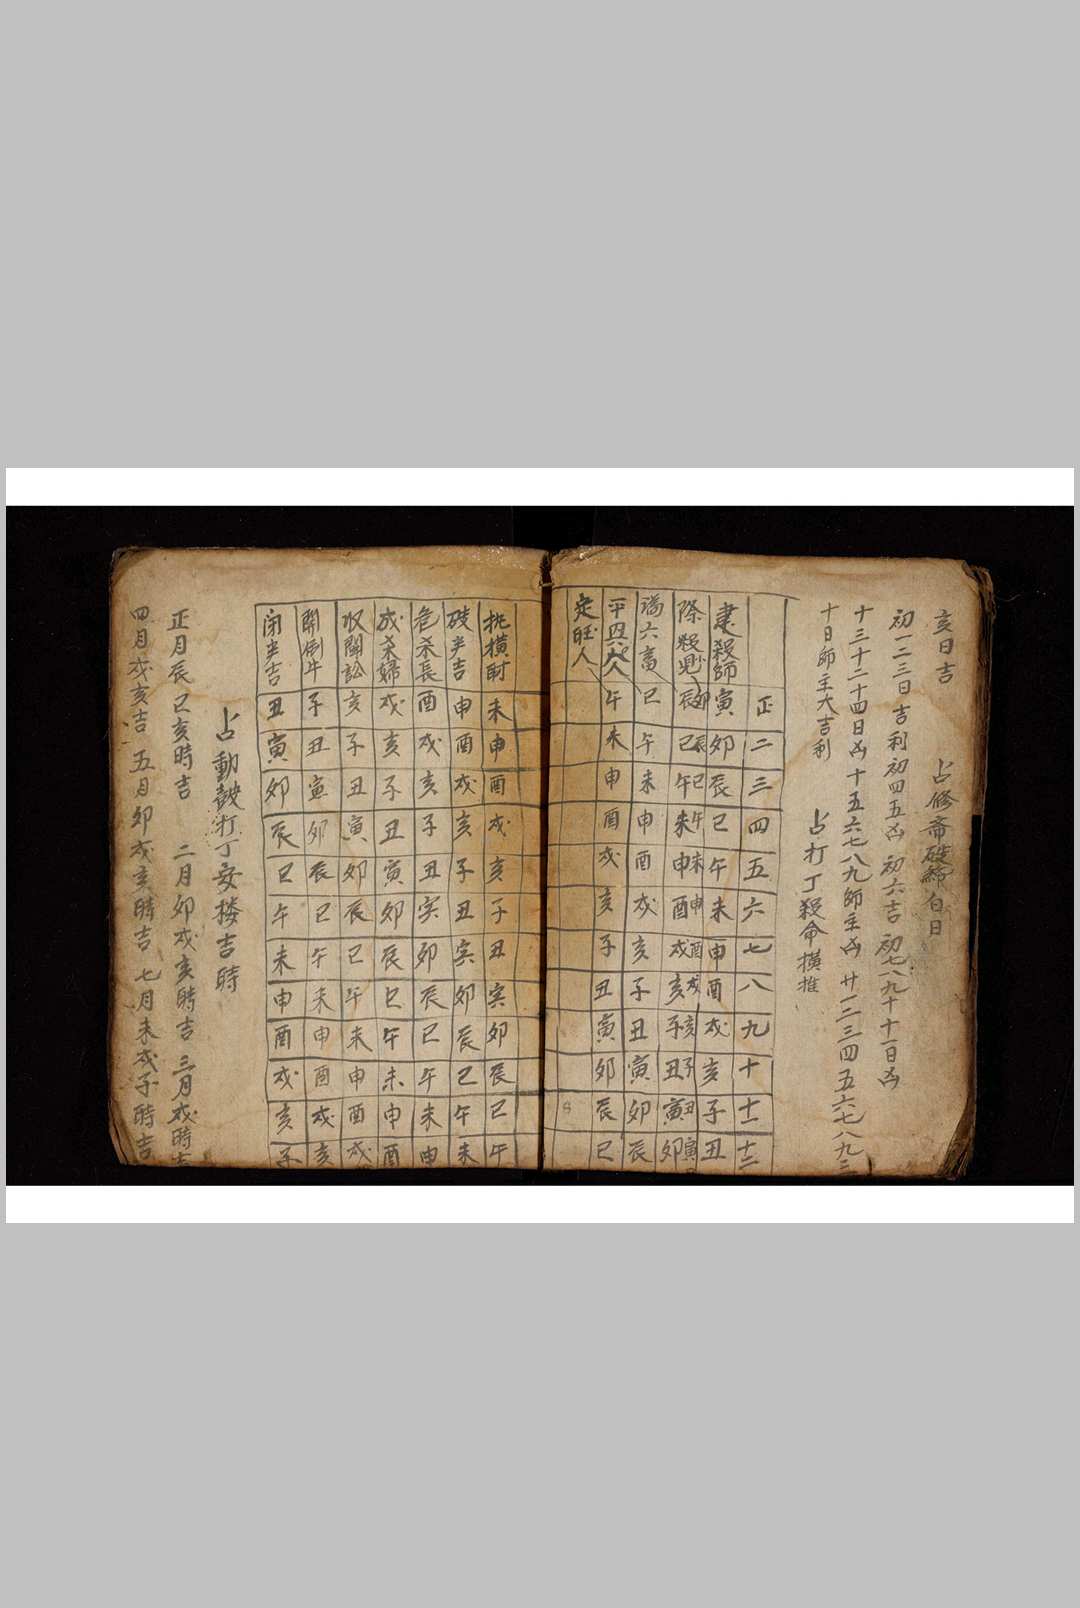 亥日吉　占修斋破　白日
初一二三日吉利初四五凶　初六吉　初七八九十十一日凶
十三十二十四日凶十五六七八九師主凶　廿一二三四五六七八九三
十日師主大吉利　占打丁殺命橫推
正二三四五六七八九十十一十二
建殺師寅卯辰巳午未申酉戌亥子丑
除殺鬼辰巳午未申酉戌亥子丑寅卯
卯辰巳午未申酉戌亥子丑寅
滿六畜巳午未申酉戌亥子丑寅卯辰
平人午未申酉戌亥子丑寅卯辰巳
定旺人
執橫財未申酉戌亥子丑寅卯辰巳午
破半吉申酉戌亥子丑寅卯辰巳午未
危杀長酉戌亥子丑寅卯辰巳午未申
成杀婦戌亥子丑寅卯辰巳午未申酉
收關訟亥子丑寅卯辰巳午未申酉戌
開倒牛子丑寅卯辰巳午未申酉戌亥
闭半吉丑寅卯辰巳午未申酉戌亥子
占動鼓打丁安楼吉時
正月辰巳亥時吉　二月卯戌亥時吉　三月戌時吉
四月戌亥吉　五月卯戌亥時吉　七月未戌子時吉